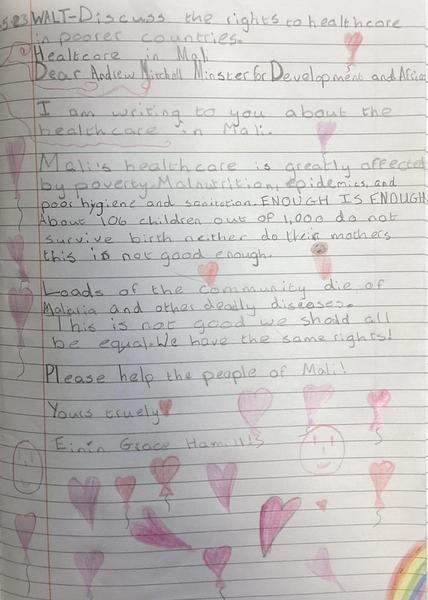 5.23 WALT-Discuss the rights to healthcare
in poorer countries.
Healtcare in Mali
Dear Andrew Mitchell Minster for Development and Africa
I am writing to you about the
healthcare in Mali.
Mali's healthcare is greatly affected
by poverty. Malnutrition, epidemics, and
poor hygiene and sanitation. ENOUGH IS ENOUGH
About 106 children out of 1,000 do not
survive birth neither do their mothers
this is not good enough.
Loads of the community die of
Malaria and other deadly diseases.
This is not good we shold all
be equal. We have the same rights!
Please help the people of Mali!
Yours truely
Eirín Grace Hamill